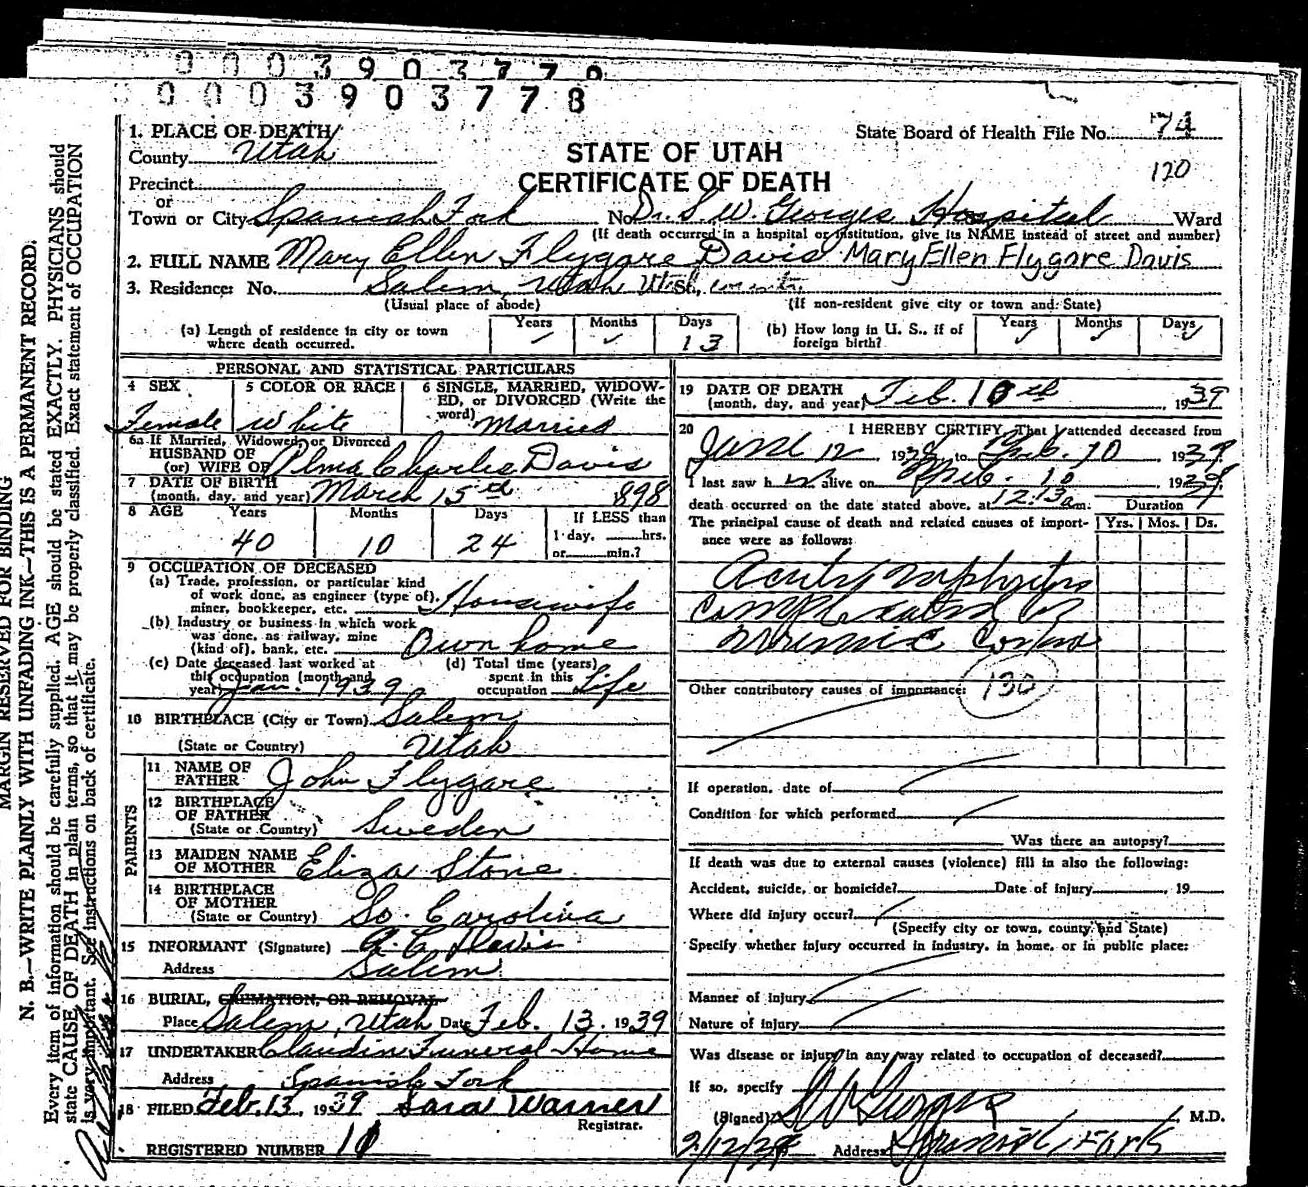 0003903778
1. PLACE OF DEATH
State Board of Health File No. 74
County Utah
STATE OF UTAH
120
Precinct
CERTIFICATE OF DEATH
or
Town or City Spanish Fork No. Dr. S. W. Georges Hospital Ward
(If death occurred in a hospital or institution, give its NAME instead of street and number)
2. FULL NAME Mary Ellen Flygare Davis Mary Ellen Flygare Davis
3. Residence: No. Salem, Utah Utah, county
(Usual place of abode) (If non-resident give city or town and State)
(a) Length of residence in city or town where death occurred. Years Months Days 13
(b) How long in U. S., if of foreign birth? Years Months Days
PERSONAL AND STATISTICAL PARTICULARS
4 SEX 5 COLOR OR RACE 6 SINGLE, MARRIED, WIDOW-
ED, or DIVORCED (Write the
word)
Female White Married
6a If Married, Widowed, or Divorced
HUSBAND OF
(or) WIFE OF Alma Charles Davis
7 DATE OF BIRTH
(month, day, and year) March 15 898
8 AGE Years Months Days If LESS than
1 day, hrs.
40 10 24 or min.?
9 OCCUPATION OF DECEASED
(a) Trade, profession, or particular kind
of work done, as engineer (type of),
miner, bookkeeper, etc. Housewife
(b) Industry or business in which work
was done, as railway, mine
(kind of), bank, etc. Own home
(c) Date deceased last worked at
this occupation (month and
year) Jan. 1939
(d) Total time (years)
spent in this
occupation Life
10 BIRTHPLACE (City or Town) Salem
(State or Country) Utah
PARENTS
11 NAME OF
FATHER John Flygare
12 BIRTHPLACE
OF FATHER
(State or Country) Sweden
13 MAIDEN NAME
OF MOTHER Eliza Stone
14 BIRTHPLACE
OF MOTHER
(State or Country) So. Carolina
15 INFORMANT (Signature) A. C. Davis
Address Salem
16 BURIAL, CREMATION, OR REMOVAL
Place Salem, Utah Date Feb. 13, 1939
17 UNDERTAKER Claudin Funeral Home
Address Spanish Fork
18 FILED Feb. 13, 1939 Sara Warner
Registrar.
REGISTERED NUMBER
19 DATE OF DEATH
(month, day, and year) Feb. 10th, 1939
20 I HEREBY CERTIFY, That I attended deceased from
12, 193 , to Feb. 10, 1939
I last saw h alive on 10 19
death occurred on the date stated above, at m.
Duration
The principal cause of death and related causes of import-
ance were as follows: Yrs. Mos. Ds.
Acute Nephritis
Complicated by
Uremic Coma
Other contributory causes of importance: 130
If operation, date of
Condition for which performed
Was there an autopsy?
If death was due to external causes (violence) fill in also the following:
Accident, suicide, or homicide? Date of injury , 19
Where did injury occur?
(Specify city or town, county, and State)
Specify whether injury occurred in industry, in home, or in public place:
Manner of injury
Nature of injury
Was disease or injury in any way related to occupation of deceased?
If so, specify
(Signed) M.D.
2/12/39 Address Spanish Fork
MARGIN RESERVED FOR BINDING
N. B.—WRITE PLAINLY WITH UNFADING INK—THIS IS A PERMANENT RECORD.
Every item of information should be carefully supplied. AGE should be stated EXACTLY. PHYSICIANS should
state CAUSE OF DEATH in plain terms, so that it may be properly classified. Exact statement of OCCUPATION
is very important. See instructions on back of certificate.